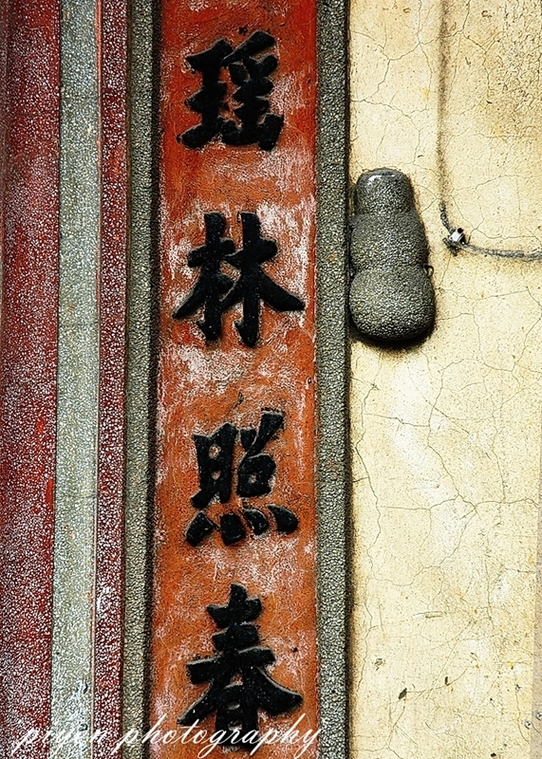 瑶林照春
piyen photography